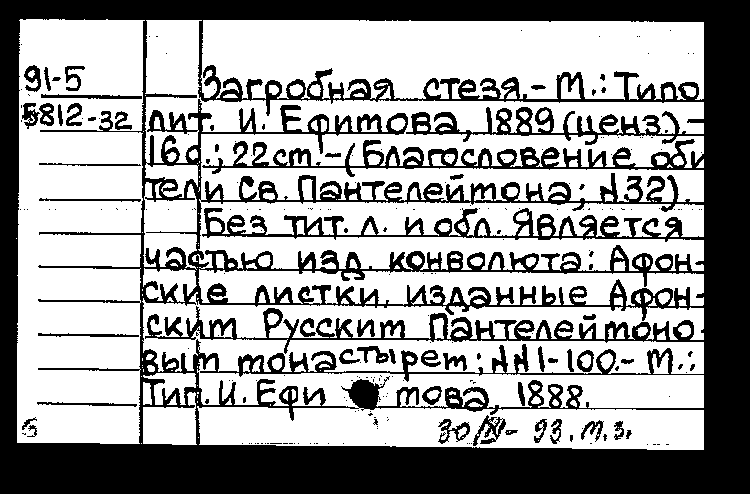 91-5 Загробная стезя.- М.: Типо
5812-32 лит. И. Ефимова, 1889 (ценз).-
16с.; 22см.-(Благословение оби
тели Св. Пантелеймона; №32).
Без тит. л. и обл. Является
частью изд. конволюта: Афон-
ские листки, изданные Афон-
ским Русским Пантелеймоно-
вым монастырем; №№1-100.- М.:
Тип. И. Ефимова, 1888.
30/XI- 93. М.З.